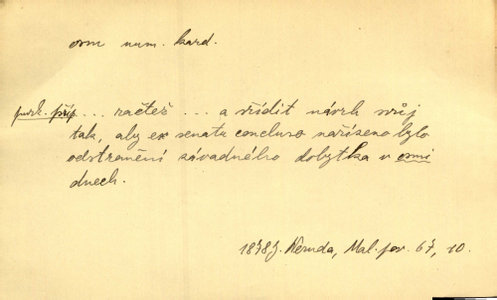 osm num. kard.
... račteš ... a řídit návrh svůj
tak, aby ex senatu concluso nařízeno bylo
odstranění závadného dobytka v osmi
dnech.
1878 J. Neruda, Mal. pov. 67, 10.